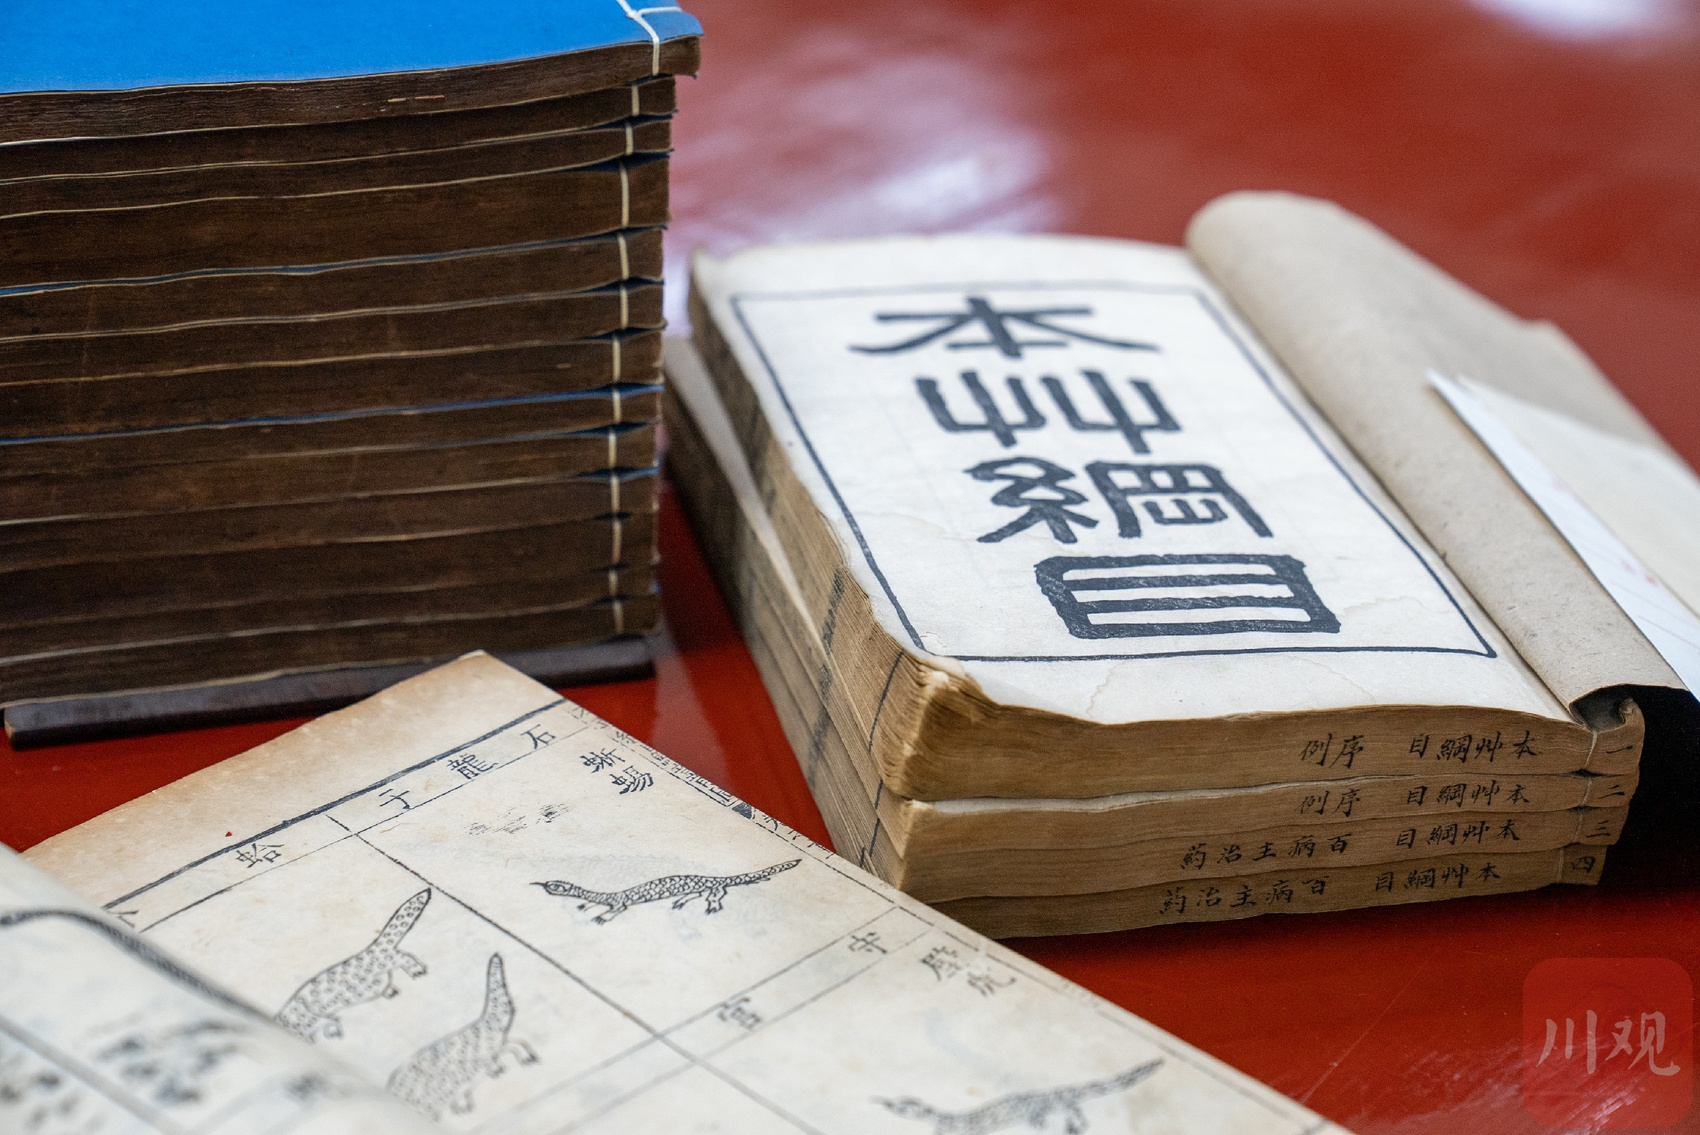 本艸綱目
本艸綱目 序例
一
本艸綱目 序例
二
本艸綱目 百病主治药
三
本艸綱目 百病主治药
四
石龍子
蜥蜴
蛤
守宮
川观